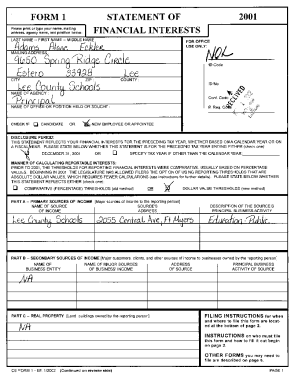 FORM 1 STATEMENT OF 2001
Please print or type your name, mailing address, agency name, and position below.
FINANCIAL INTERESTS
LAST NAME -- FIRST NAME -- MIDDLE NAME
FOR OFFICE USE ONLY:
Adams
MAILING ADDRESS
9650 Spring Ridge Circle
Estero 33928 Lee
CITY ZIP COUNTY
ID Code
Lee County Schools
ID No.
NAME OF AGENCY
Principal
Conf. Code
NAME OF OFFICE OR POSITION HELD OR SOUGHT:
P. Req. Code
CHECK IF CANDIDATE OR NEW EMPLOYEE OR APPOINTEE
DISCLOSURE PERIOD:
THIS STATEMENT REFLECTS YOUR FINANCIAL INTERESTS FOR THE PRECEDING TAX YEAR, WHETHER BASED ON A CALENDAR YEAR OR ON A FISCAL YEAR. PLEASE STATE BELOW WHETHER THIS STATEMENT IS FOR THE PRECEDING TAX YEAR ENDING EITHER (check one)
DECEMBER 31, 2001 OR SPECIFY TAX YEAR IF OTHER THAN THE CALENDAR YEAR:
MANNER OF CALCULATING REPORTABLE INTERESTS:
PRIOR TO 2001, THE THRESHOLDS FOR REPORTING FINANCIAL INTERESTS WERE COMPARATIVE, USUALLY BASED ON PERCENTAGE VALUES. BEGINNING IN 2001 THE LEGISLATURE HAS ALLOWED FILERS THE OPTION OF USING REPORTING THRESHOLDS THAT ARE ABSOLUTE DOLLAR VALUES, WHICH REQUIRES FEWER CALCULATIONS (see instructions for further details). PLEASE STATE BELOW WHETHER THIS STATEMENT REFLECTS EITHER (check one)
COMPARATIVE (PERCENTAGE) THRESHOLDS (old method) OR DOLLAR VALUE THRESHOLDS (new method)
PART A -- PRIMARY SOURCES OF INCOME [Major sources of income to the reporting person]
NAME OF SOURCE OF INCOME SOURCE'S ADDRESS DESCRIPTION OF THE SOURCE'S PRINCIPAL BUSINESS ACTIVITY
Lee County Schools 2055 Central Ave, Ft Myers Education, Public
PART B -- SECONDARY SOURCES OF INCOME [Major customers, clients, and other sources of income to businesses owned by the reporting person]
NAME OF BUSINESS ENTITY NAME OF MAJOR SOURCES OF BUSINESS' INCOME ADDRESS OF SOURCE PRINCIPAL BUSINESS ACTIVITY OF SOURCE
NA
PART C -- REAL PROPERTY [Land, buildings owned by the reporting person]
NA
FILING INSTRUCTIONS for when and where to file this form are located at the bottom of page 2.
INSTRUCTIONS on who must file this form and how to fill it out begin on page 3.
OTHER FORMS you may need to file are described on page 6.
CE FORM 1 - Eff. 1/2002 (Continued on reverse side) PAGE 1